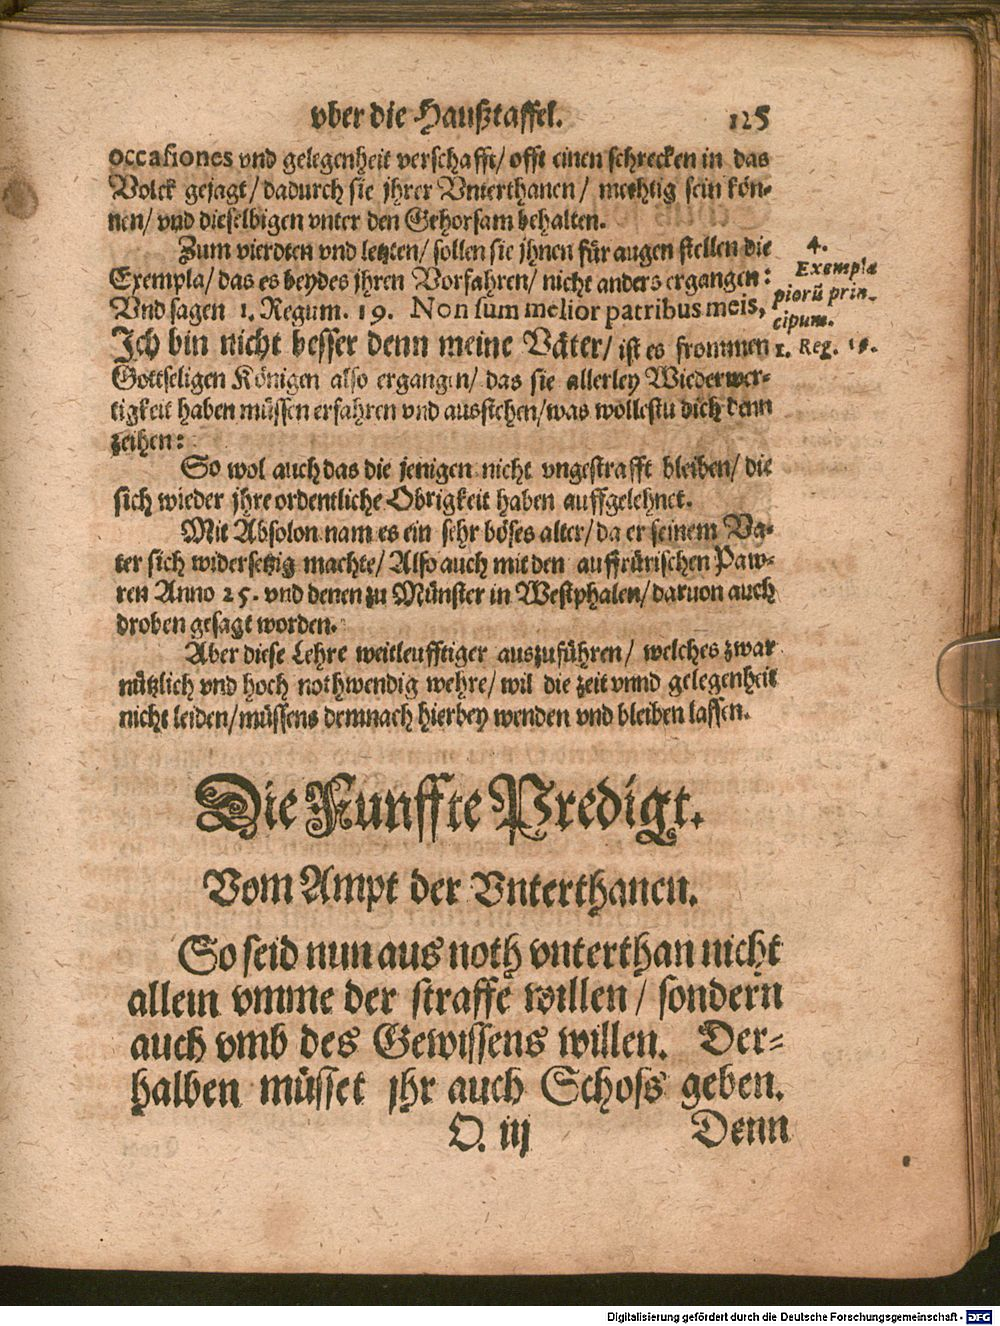 vber die Haußtaffel. 125
occasiones vnd gelegenheit verschafft/ offt einen schrecken in das
Volck gejagt/ dadurch sie jhrer Vnterthanen/ mechtig sein kön-
nen/ vnd dieselbigen vnter den Gehorsam behalten.
Zum vierdten vnd letzten/ sollen sie jhnen für augen stellen die
Exempla/ das es beydes jhren Vorfahren/ nicht anders ergangen:
Vnd sagen 1. Regum. 19. Non sum melior patribus meis,
Ich bin nicht besser denn meine Väter/ ist es frommen
Gottseligen Königen also ergangen/ das sie allerley Wiederwer-
tigkeit haben müssen erfahren vnd ausstehen/ was wollestu dich denn
zeihen:
4.
Exempla
piorū prin-
cipum.
1. Reg. 19.
So wol auch das die jenigen nicht vngestrafft bleiben/ die
sich wieder jhre ordentliche Obrigkeit haben auffgelehnet.
Mit Absolon nam es ein sehr böses alter/ da er seinem Va-
ter sich widersetzig machte/ Also auch mit den auffrürischen Paw-
ren Anno 25. vnd denen zu Münster in Westphalen/ daruon auch
droben gesagt worden.
Aber diese Lehre weitleufftiger auszuführen/ welches zwar
nützlich vnd hoch nothwendig wehre/ wil die zeit vnnd gelegenheit
nicht leiden/ müssens demnach hierbey wenden vnd bleiben lassen.
Die Funffte Predigt.
Vom Ampt der Vnterthanen.
So seid nun aus noth vnterthan nicht
allein vmme der straffe willen/ sondern
auch vmb des Gewissens willen. Der-
halben müsset jhr auch Schoss geben.
O. iij Denn
Digitalisierung gefördert durch die Deutsche Forschungsgemeinschaft - DFG